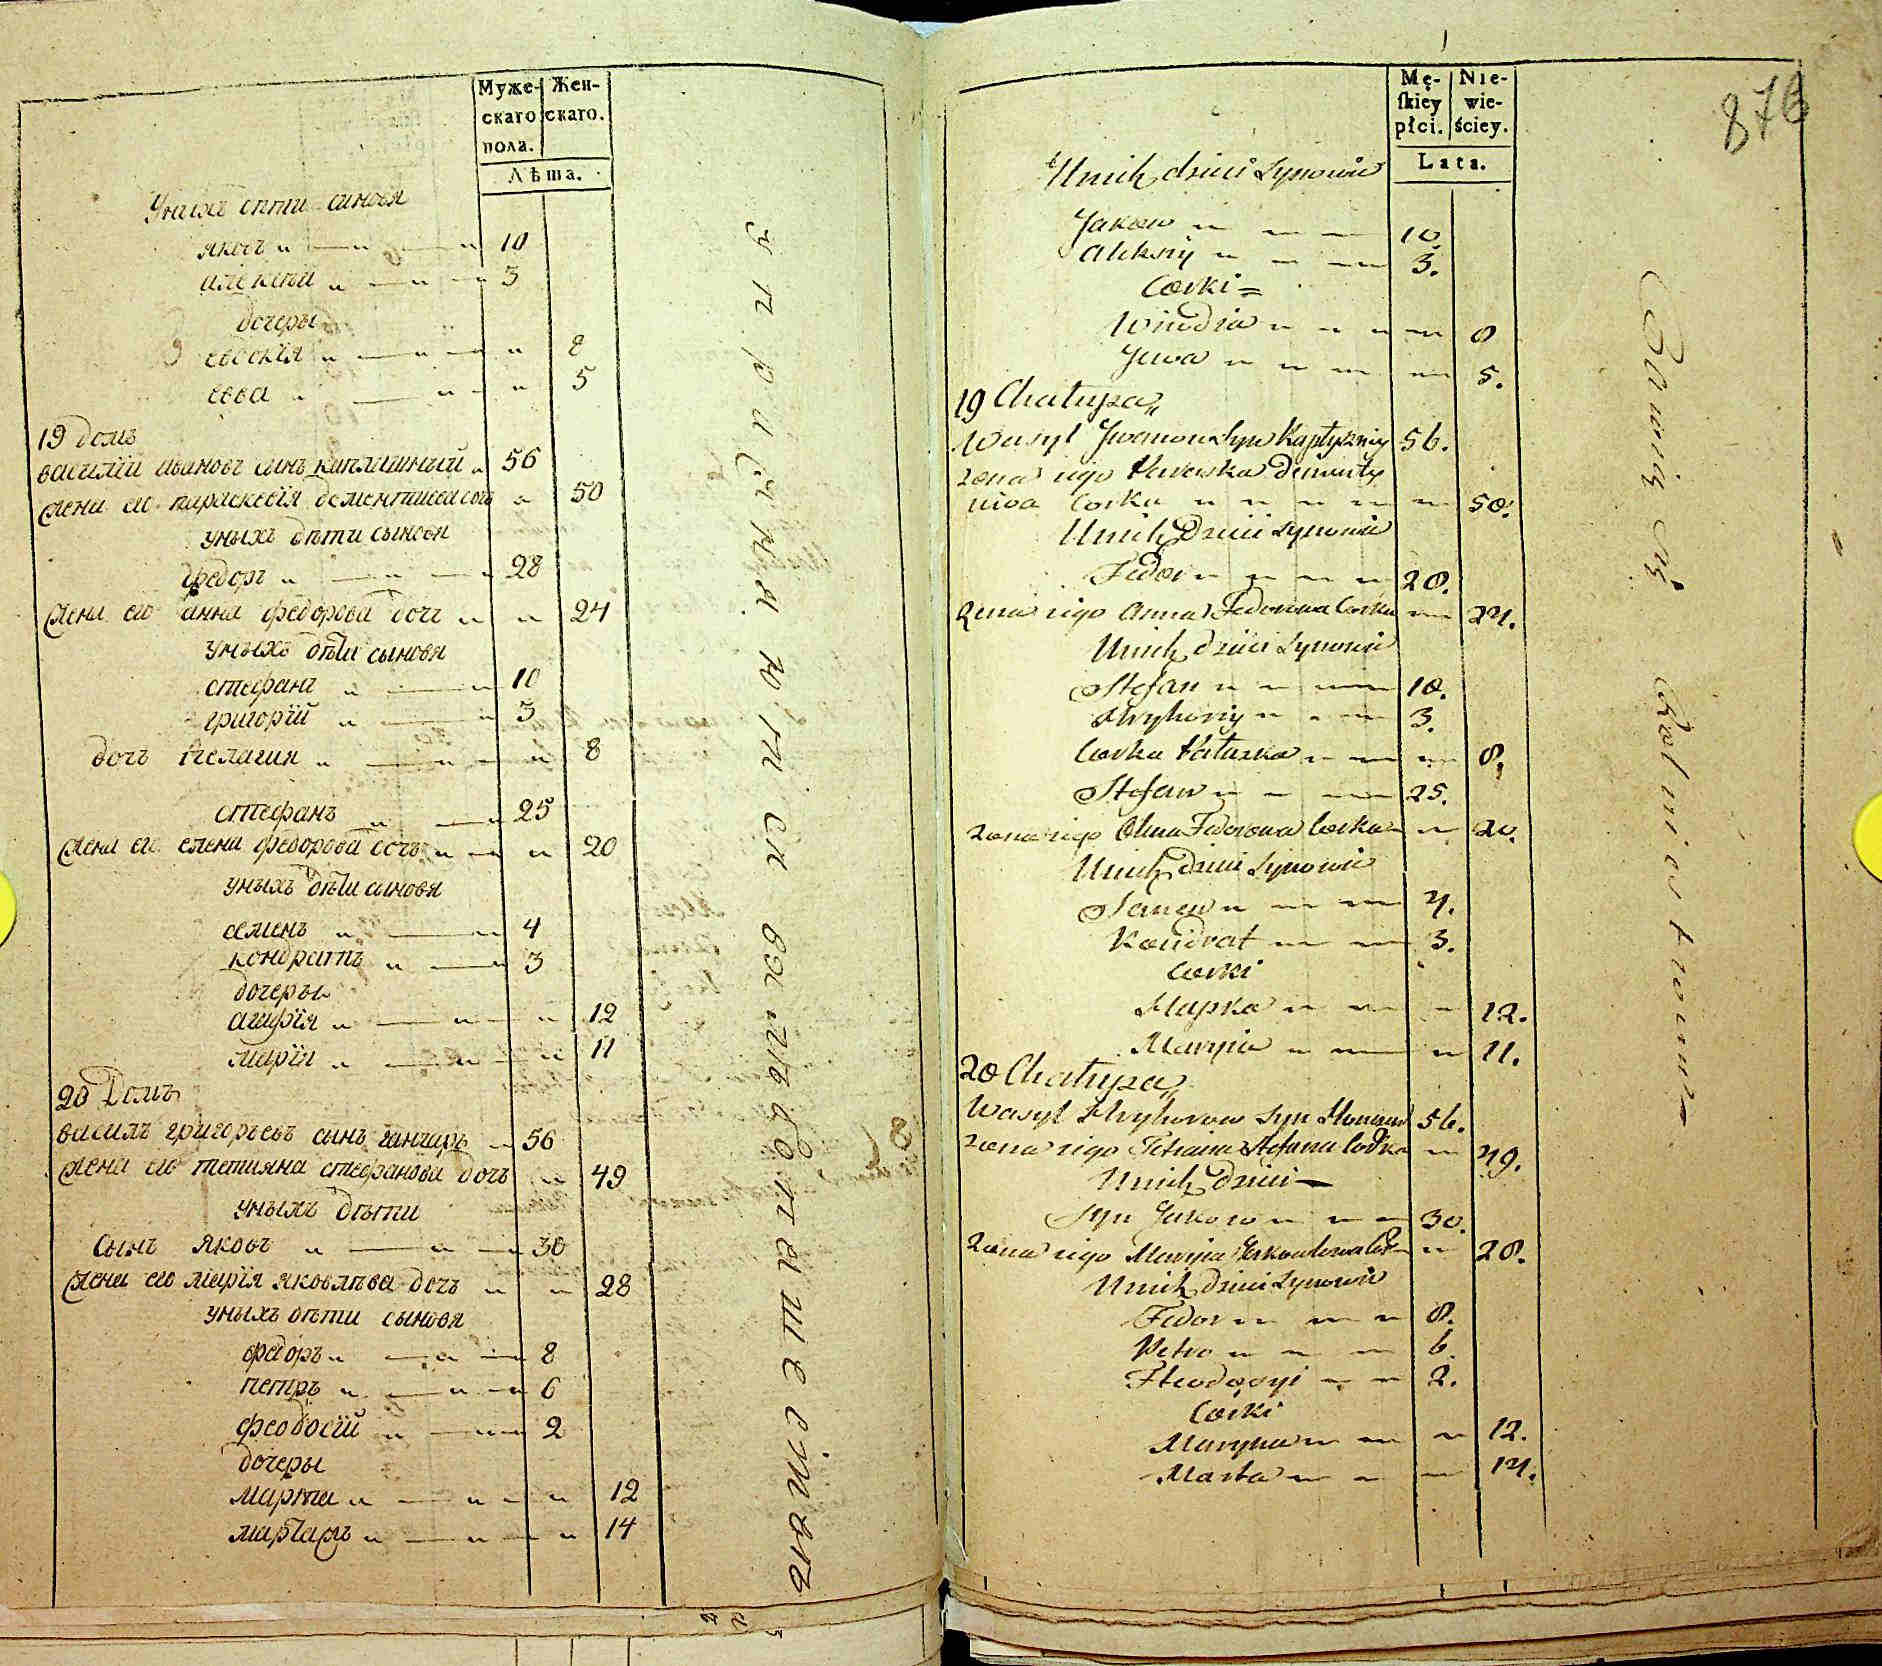 Муже-
скаго
пола.
Жен-
скаго.
Лѣта.
Уныхъ дѣти синовя
яковъ 10
алексѣй 3
дочеры
евдокїя 8
евва 5
19 домъ
василїй ивановъ сынъ каплишный 56
жена его параскевїя дементиева дочъ 50
уныхъ дѣти сыновя
федоръ 28
жена его анна федорова дочъ 24
уныхъ дѣти сыновя
стефанъ 10
григорїй 3
дочъ пелагия 8
стефанъ 25
жена его елена федорова дочъ 20
уныхъ дѣти сыновя
семенъ 4
кондратъ 3
дочеры
агафїя 12
марїя 11
20 Домъ
василъ григоръевъ сынъ ганчаръ 56
жена его тетияна стефанова дочъ 49
уныхъ дѣти
сынъ яковъ 30
жена его марїя яковлѣва дочъ 28
уныхъ дѣти сыновя
федоръ 8
петръ 6
феодосїй 2
дочеры
марта 12
14
Mę-
skiey
płci.
Nie-
wie-
ściey.
Lata.
876
Unich dzieci Synowie
Jakow 10.
Aleksiy 3.
Corki
8
Jewa 5.
19 Chałupa
Wasyl Iwanow Syn Kaplyszniy 56.
zona iego Paraska Dementy
iewa Corka 50.
Unich Dzieci Synowie
Fedor 28.
zona iego Anna Fedorowa Corka 24.
Unich dzieci Synowie
Stefan 10.
Hryhoriy 3.
Corka 8.
Stefan 25.
zona iego Olena Fedorowa Corka 20.
Unich dzieci Synowie
Semen 4.
Kondrat 3.
Corki
Hapka 12.
Maryia 11.
20 Chałupa
Wasyl Hryhorow Syn Honczar 56.
zona iego Tetiana Stefana Corka 49.
Unich dzieci
Syn Jakow 30.
zona iego Maryia 28.
Unich dzieci Synowie
Fedor 8.
Petro 6
Fteodosyi 2.
Corki
12.
Marta 14.